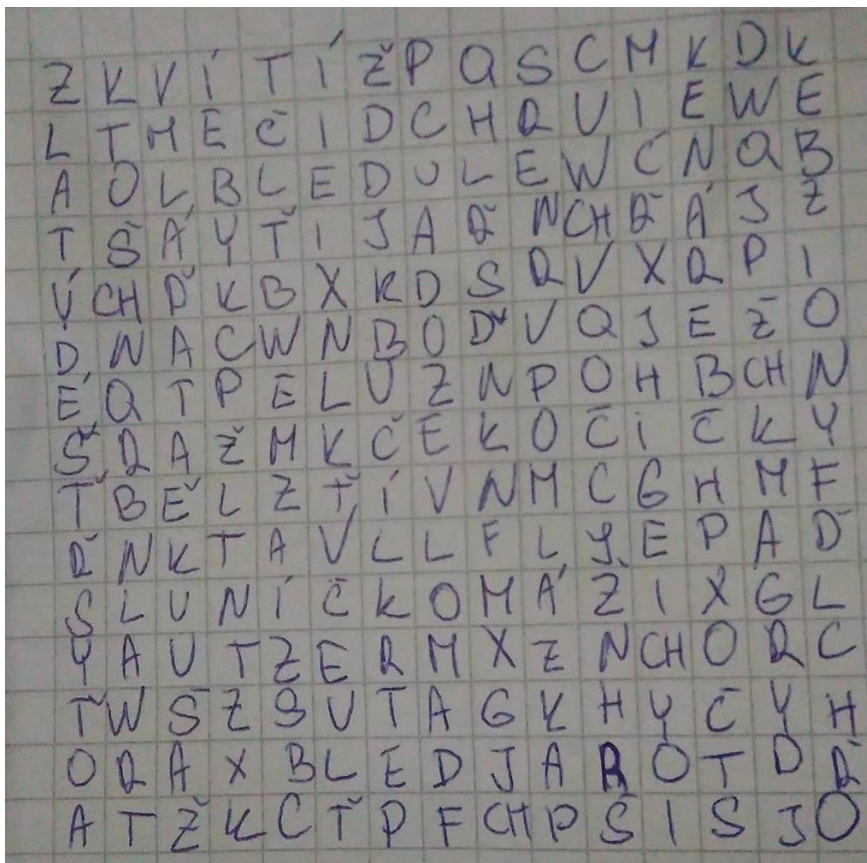 Z K V Í T Í Ž P Q S C M K D K
L T M E Č I D C H R U I E W E
A O L B L E D U L E W C N Q B
T Š Á Y Ť I J A Ř N CH Ř Á J Z
Ý CH Ď K B X K D S R V X R P I
D N A C W N B O Ď V Q J E Ž O
É Q T P E L U Z N P O H B CH N
Š R A Ž M K Č E K O Č I Č K Y
Ť B Ě L Z Ť Í V N M C G H M F
Ř N K T A V L L F L Y E P A Ď
S L U N Í Č K O M Á Z I X G L
Y A U T Z E R M X Z N CH O R C
Ť W S Z S U T A G K H Y Č Y H
O R A X B L E D J A R O T D Ř
A T Ž K C Ť P F CH P Š I S J O